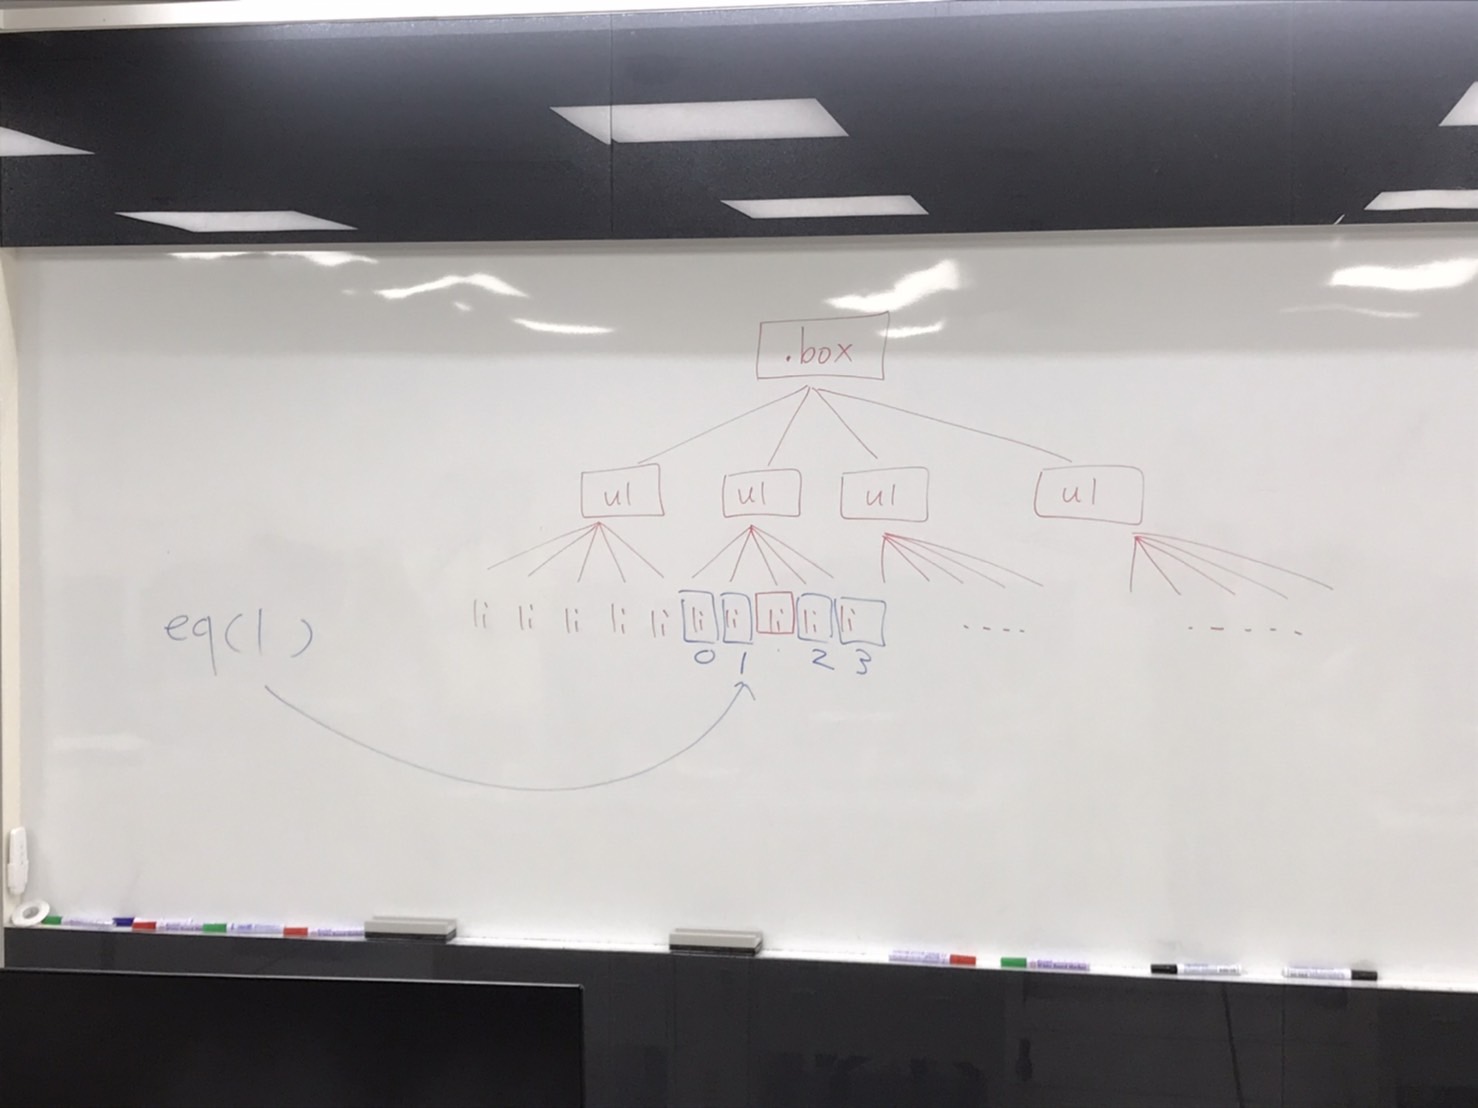 .box
ul ul ul ul
li li li li li li li li li li ---- -----
eq(1)
0 1 2 3